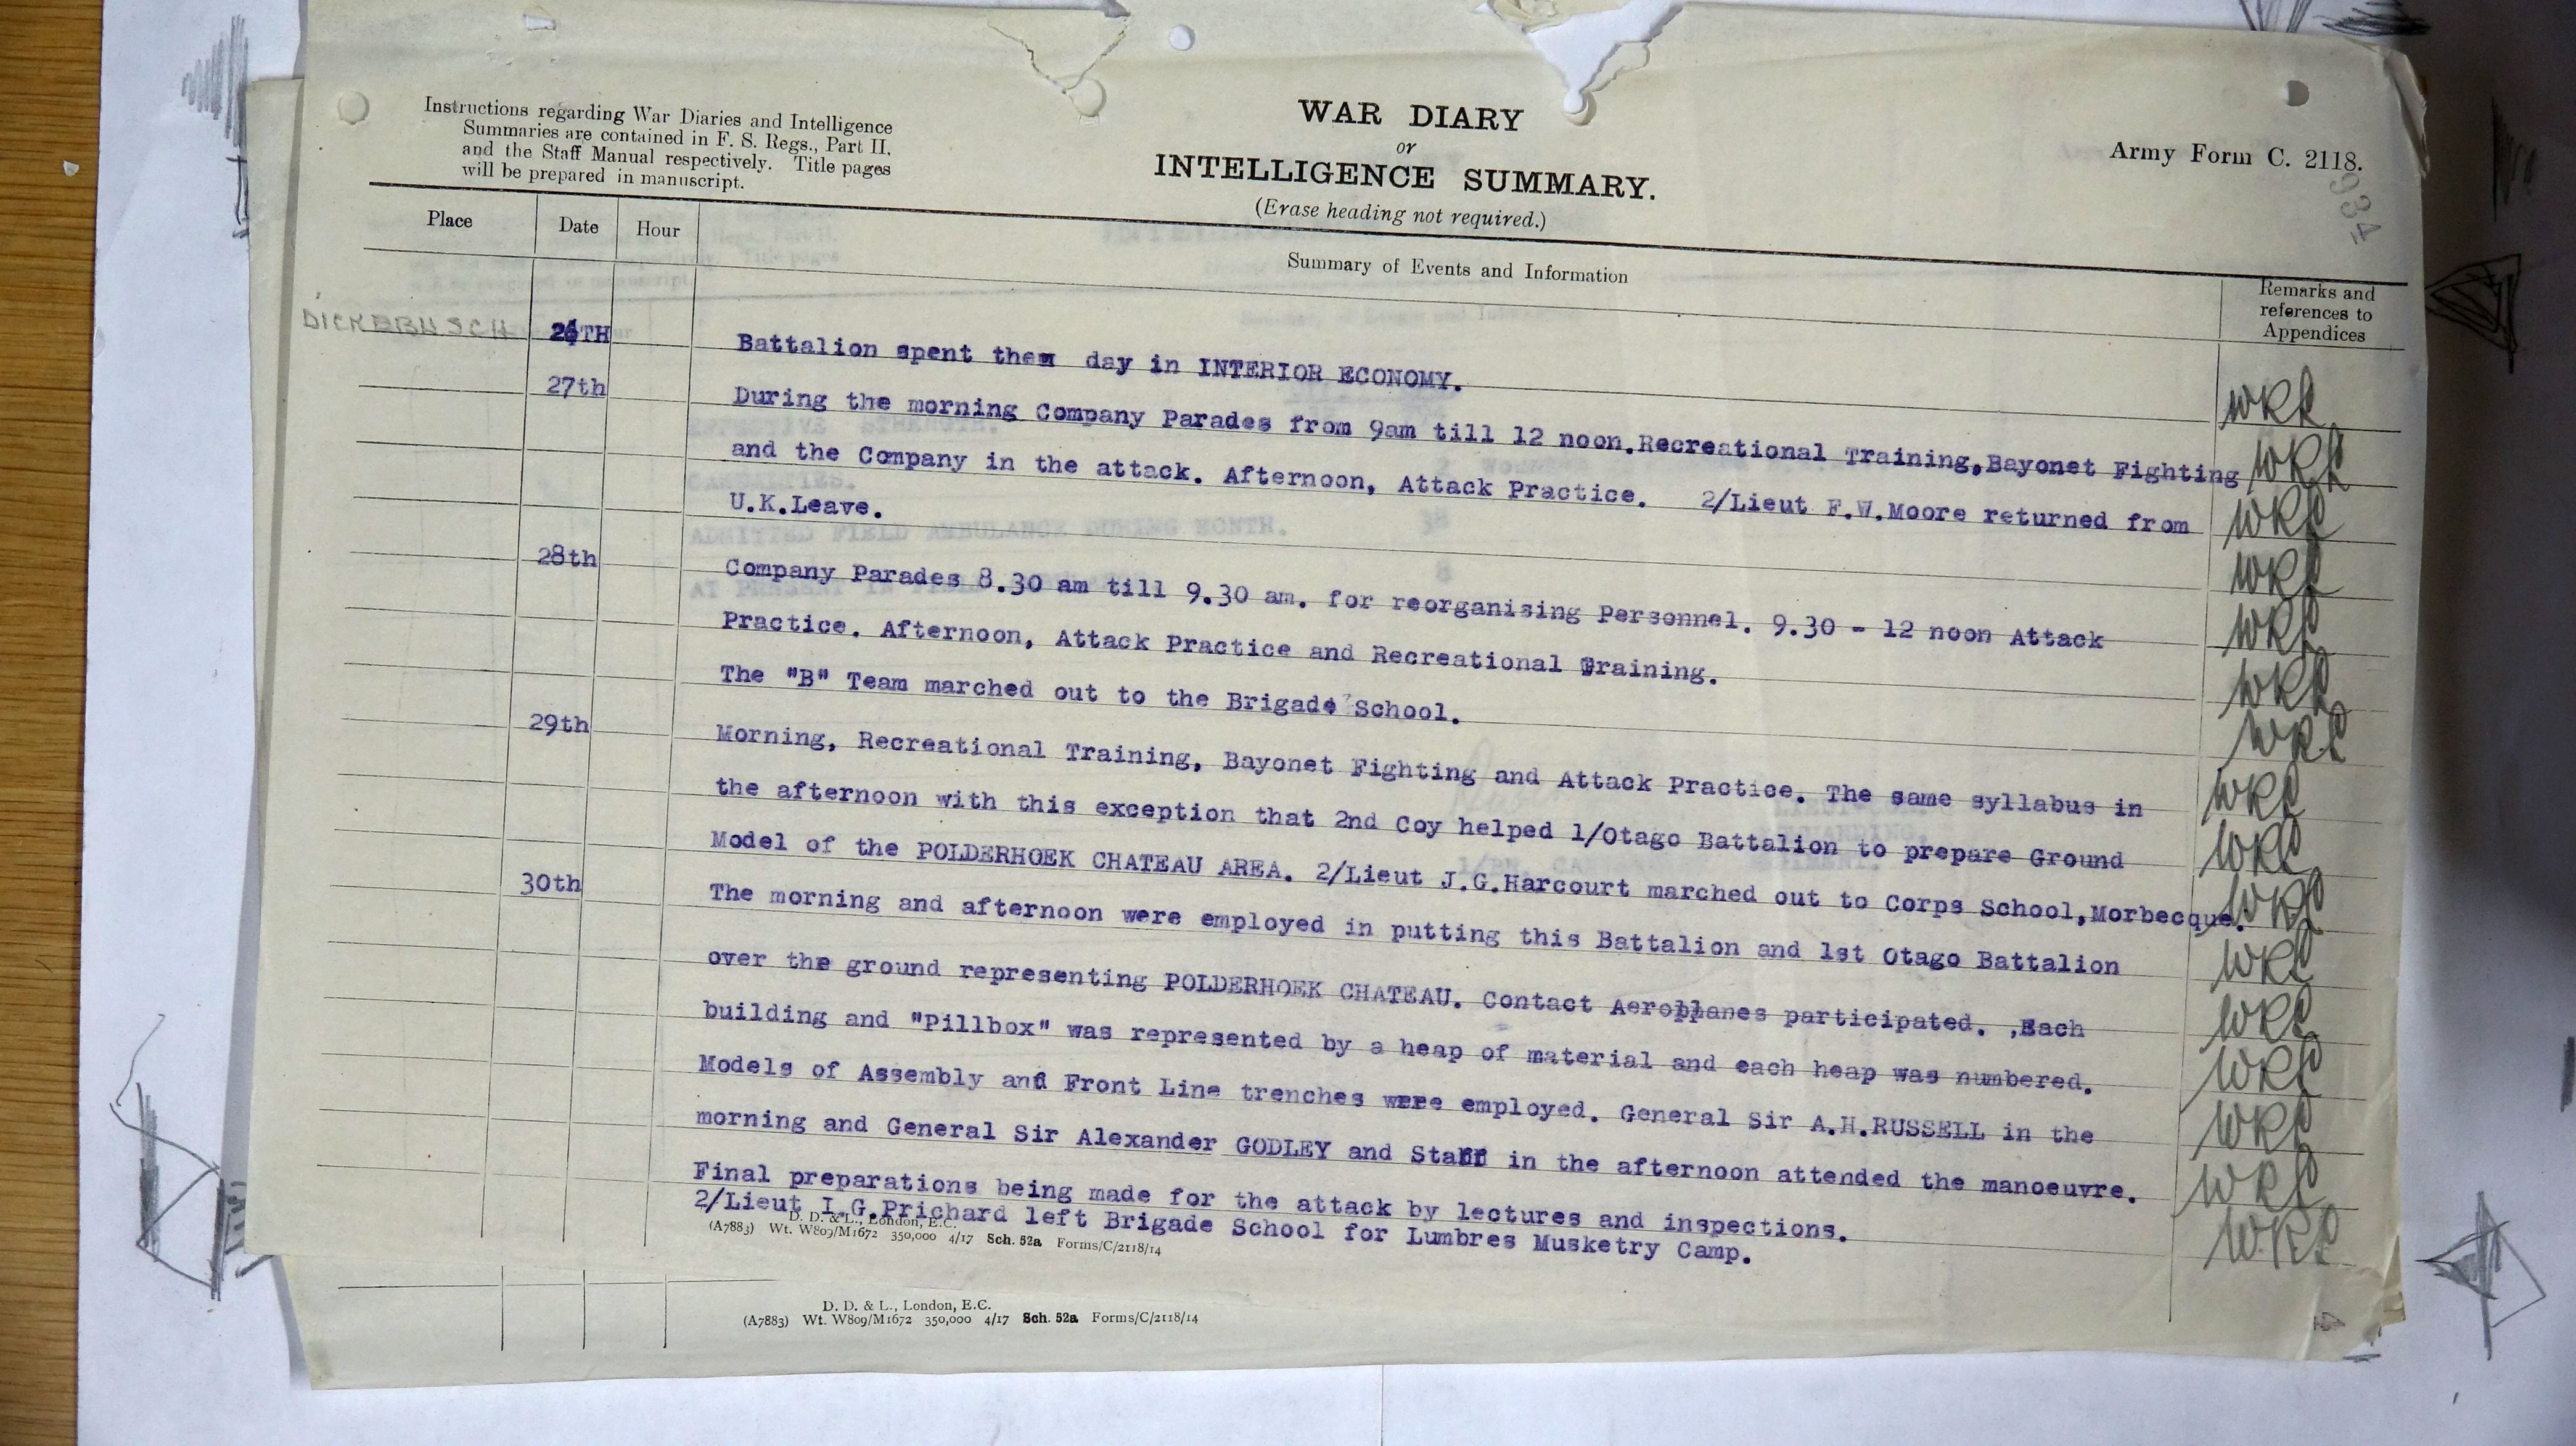 Instructions regarding War Diaries and Intelligence
Summaries are contained in F. S. Regs., Part II.
and the Staff Manual respectively. Title pages
will be prepared in manuscript.
WAR DIARY
or
INTELLIGENCE SUMMARY.
(Erase heading not required.)
Army Form C. 2118.
934
Place Date Hour Summary of Events and Information Remarks and
references to
Appendices
DICKEBUSCH 26TH Battalion spent them day in INTERIOR ECONOMY. WRL
27th During the morning Company Parades from 9am till 12 noon.Recreational Training,Bayonet Fighting WRL
and the Company in the attack. Afternoon, Attack Practice. 2/Lieut F.W.Moore returned from WRL
U.K.Leave. WRL
28th Company Parades 8.30 am till 9.30 am. for reorganising Personnel. 9.30 - 12 noon Attack WRL
Practice. Afternoon, Attack Practice and Recreational Training. WRL
The "B" Team marched out to the Brigade School. WRL
29th Morning, Recreational Training, Bayonet Fighting and Attack Practice. The same syllabus in WRL
the afternoon with this exception that 2nd Coy helped 1/Otago Battalion to prepare Ground WRL
Model of the POLDERHOEK CHATEAU AREA. 2/Lieut J.G.Harcourt marched out to Corps School,Morbecque. WRL
30th The morning and afternoon were employed in putting this Battalion and 1st Otago Battalion WRL
over the ground representing POLDERHOEK CHATEAU. Contact Aeroplanes participated. ,Each WRL
building and "Pillbox" was represented by a heap of material and each heap was numbered. WRL
Models of Assembly and Front Line trenches were employed. General Sir A.H.RUSSELL in the WRL
morning and General Sir Alexander GODLEY and Staff in the afternoon attended the manoeuvre. WRL
Final preparations being made for the attack by lectures and inspections. WRL
2/Lieut I.G.Prichard left Brigade School for Lumbres Musketry Camp.
D. D. & L., London, E.C.
(A7883) Wt. W809/M1672 350,000 4/17 Sch. 52a Forms/C/2118/14
D. D. & L., London, E.C.
(A7883) Wt. W809/M1672 350,000 4/17 Sch. 52a Forms/C/2118/14
4